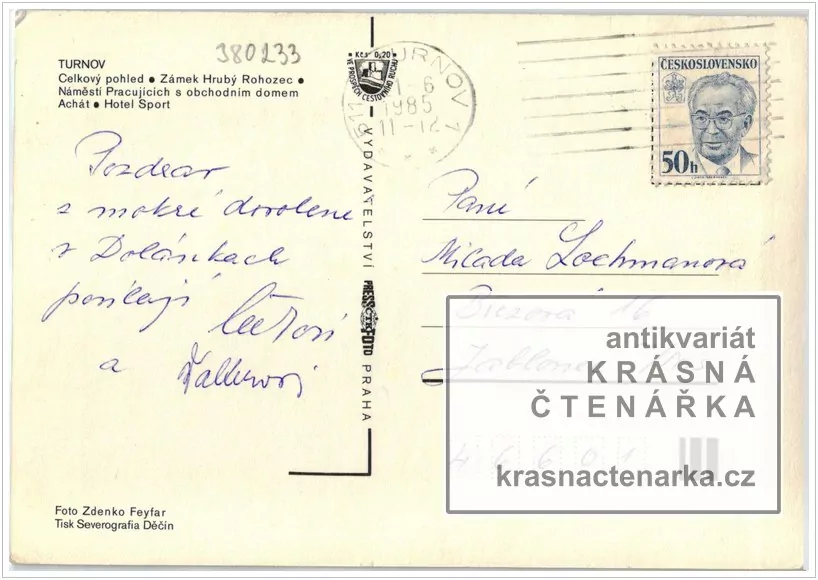 380233
TURNOV
Celkový pohled • Zámek Hrubý Rohozec •
Náměstí Pracujících s obchodním domem
Achát • Hotel Sport
Kčs 0,20
VE PROSPĚCH CESTOVNÍHO RUCHU
TURNOV 1
511
1-6
1985
11-12
ČESKOSLOVENSKO
50h
Pozdrav
z mokré dovolené
v Dolánkách
posílají
a
VYDAVATELSTVÍ PRESSFOTO PRAHA
ČTK
Paní
Milada Lochmanová
Březová 16
Jablonec
46601
antikvariát
KRÁSNÁ
ČTENÁŘKA
krasnactenarka.cz
Foto Zdenko Feyfar
Tisk Severografia Děčín